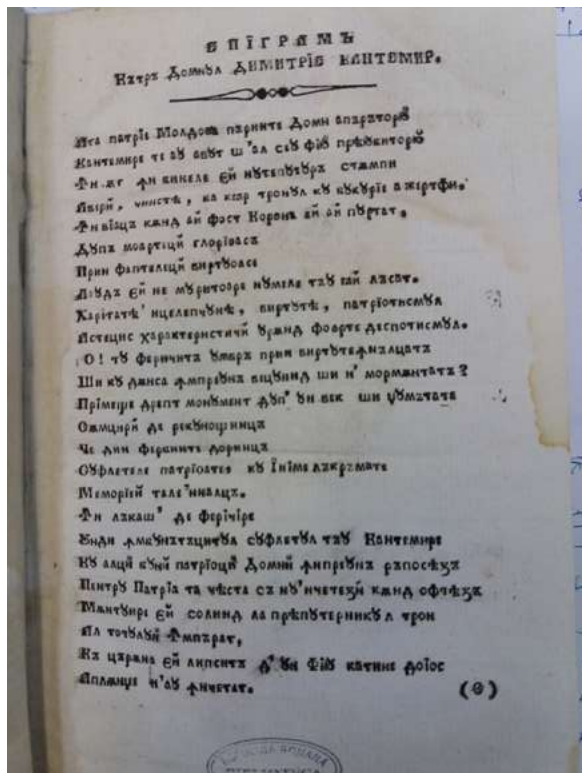 ЕПІГРАМЪ
Кътръ Домнꙋл ДИМИТРІЕ КАНТЕМИР.
Ата патріе Молдова пъринте Домн апъръторю
Кантемире те аꙋ авꙋт ш'ал сеꙋ фію прѣюбиторю
Ꙟвіацъ кѫнд ай фост Корона ей ай пꙋртат.
Дꙋпъ моартецй глоріоасъ
Прин фаптелецй виртꙋоасе
Лаꙋдъ ей не мꙋритоаре нꙋмеле тъꙋ еай лъсат.
Харітатѣ' нцелепчꙋнѣ, виртꙋтѣ, патріотисмꙋл
Ачестіс характеристичй ꙋрѫнд фоарте деспотисмꙋл.
О! тꙋ феричитъ ꙋмбръ прин виртꙋте ꙟнълцатъ
Ши кꙋ дѫнса ꙟмпреꙋнъ вецꙋинд ши н' мормѫнтатъ?
Прімеще дрепт монꙋмент дꙋп' ꙋн век ши жꙋмътате
Оѫмцирй де рекꙋнощинцъ
Че дин фербинте доринцъ
Сꙋфлетеле патріоате кꙋ Інімѣ лъкръмате
Меморіей тале 'налцъ.
Ꙟн лъкаш' де ферічіре
Ꙋнди ꙟмбꙋнътъцитꙋл сꙋфлетꙋл тъꙋ Кантемире
Кꙋ алцй бꙋнй патріоцй Домнй ꙟмпреꙋнъ ръпосѣзъ
Пентрꙋ Патріа та чѣста съ нꙋ'нчетезй кѫнд офтѣзъ
Мѫнтꙋире ей солинд ла прѣпꙋтерникꙋл трон
Ал тотꙋлꙋй Ꙟмпърат,
Къ църѫна ей липситъ д' ꙋн фію ка тине доіос
Аплѫнце н'аꙋ ꙟнчетат. (Ѳ)